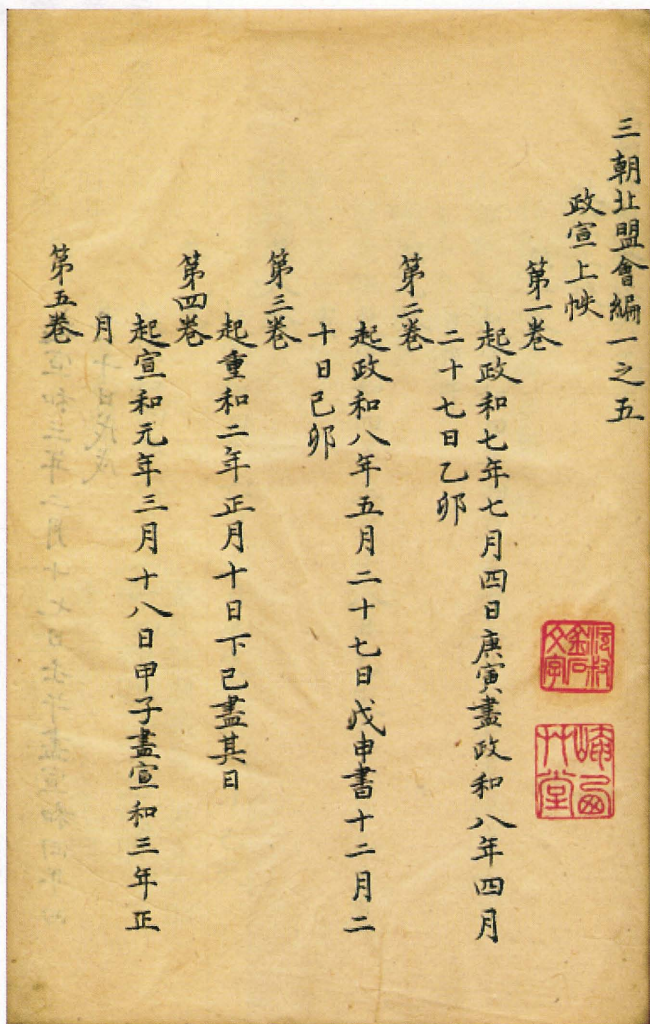 三朝北盟會編一之五
政宣上帙
第一卷
起政和七年七月四日庚寅盡政和八年四月
二十七日乙卯
第二卷
起政和八年五月二十七日戊申書十二月二
十日己卯
第三卷
起重和二年正月十日下已盡其日
第四卷
起宣和元年三月十八日甲子盡宣和三年正
月
第五卷